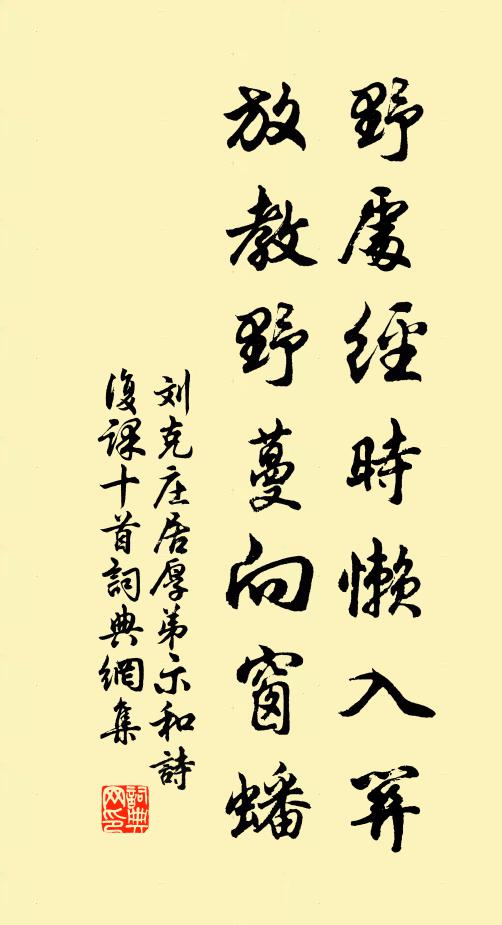 野處經時懶入關
放教野蔓向窗蟠
刘克庄居厚弟示和詩
復課十首詞典網集
詞典網印